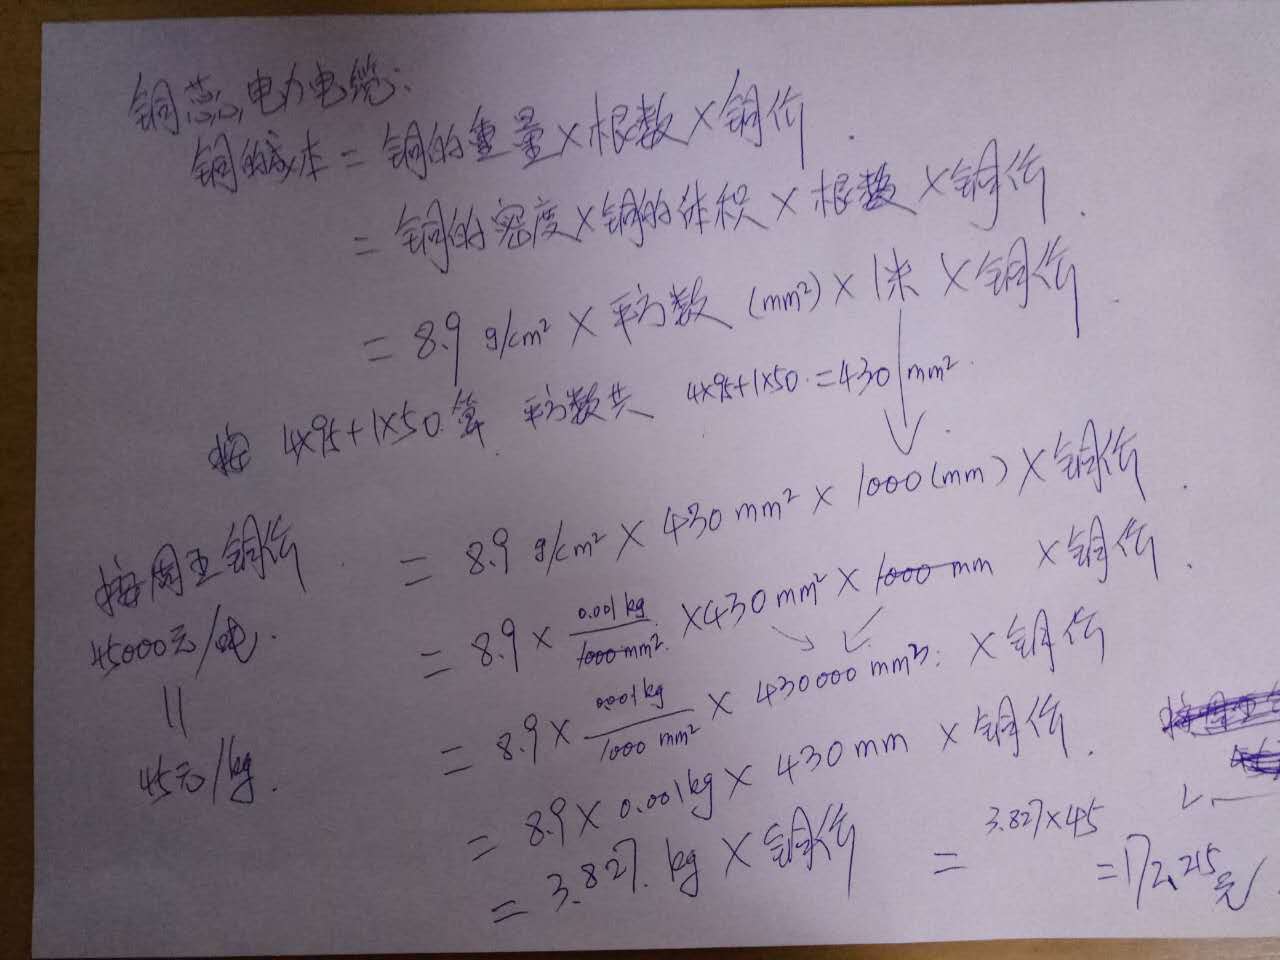 铜芯电力电缆:
铜的成本 = 铜的重量 × 根数 × 铜价.
= 铜的密度 × 铜的体积 × 根数 × 铜价.
= 8.9 g/cm² × 平方数 (mm²) × 1米 × 铜价.
按 4×95+1×50 算 平方数共 4×95+1×50 = 430 mm².
= 8.9 g/cm² × 430 mm² × 1000 (mm) × 铜价.
按周五铜价
45000元/吨.
=
45元/kg.
= 8.9 × 0.001kg/1000mm² × 430mm² × 1000mm × 铜价.
= 8.9 × 0.001kg/1000 mm² × 430000 mm³ × 铜价
= 8.9 × 0.001kg × 430mm × 铜价.
= 3.827 kg × 铜价 = 3.827×45 = 172.215元.